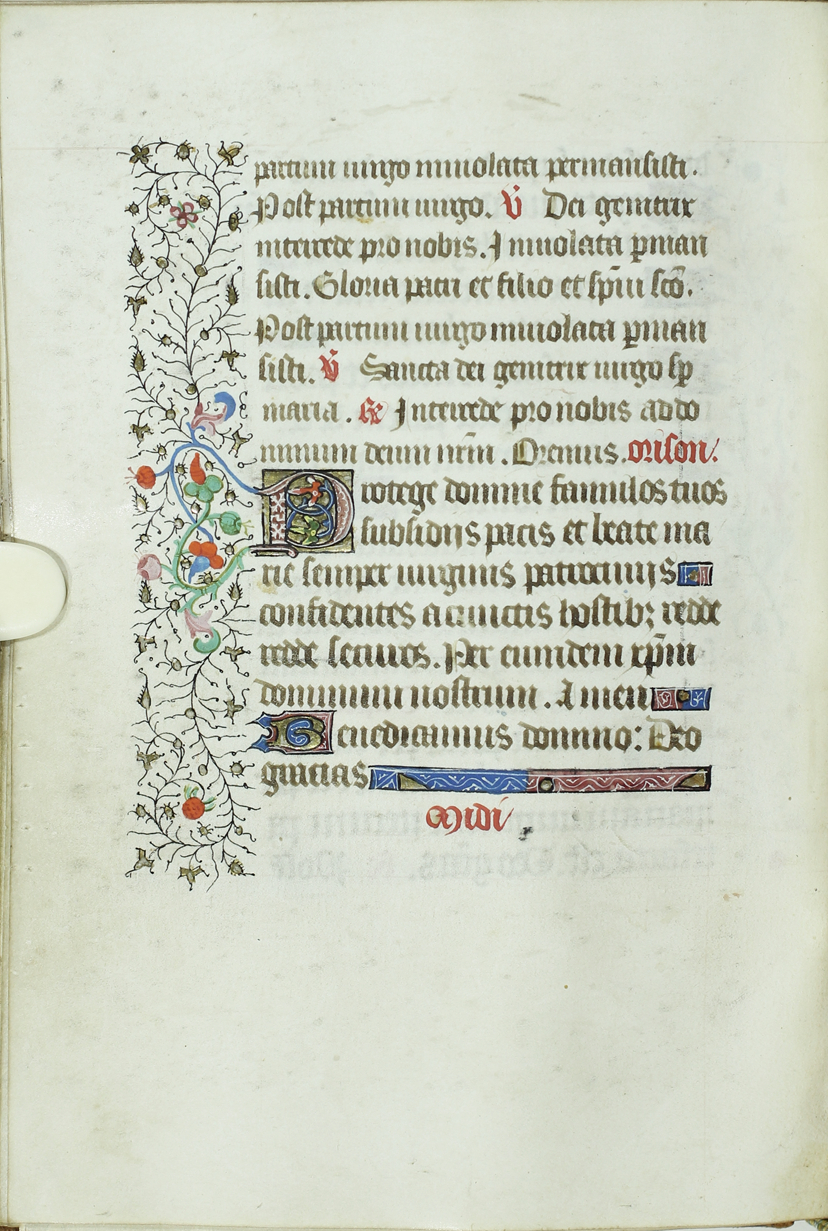 partum uirgo inuiolata permansisti.
Post partum uirgo. V̄ Dei genitrix
intercede pro nobis. Inuiolata p̄man
sisti. Gloria patri et filio et sp̄iu sc̄o.
Post partum uirgo inuiolata p̄man
sisti. V̄ Sancta dei genitrix uirgo sp̄
maria. R̄ Intercede pro nobis ad do
minum deum nr̄m. Oremus. orison.
Protege domine famulos tuos
subsidijs pacis et beate ma
rie semper uirginis patrocinijs
confidentes a cunctis hostibꝫ redde
redde securos. Per eumdem xp̄m
dominum nostrum. Amen
Benedicamus domino: Deo
gracias
Midi